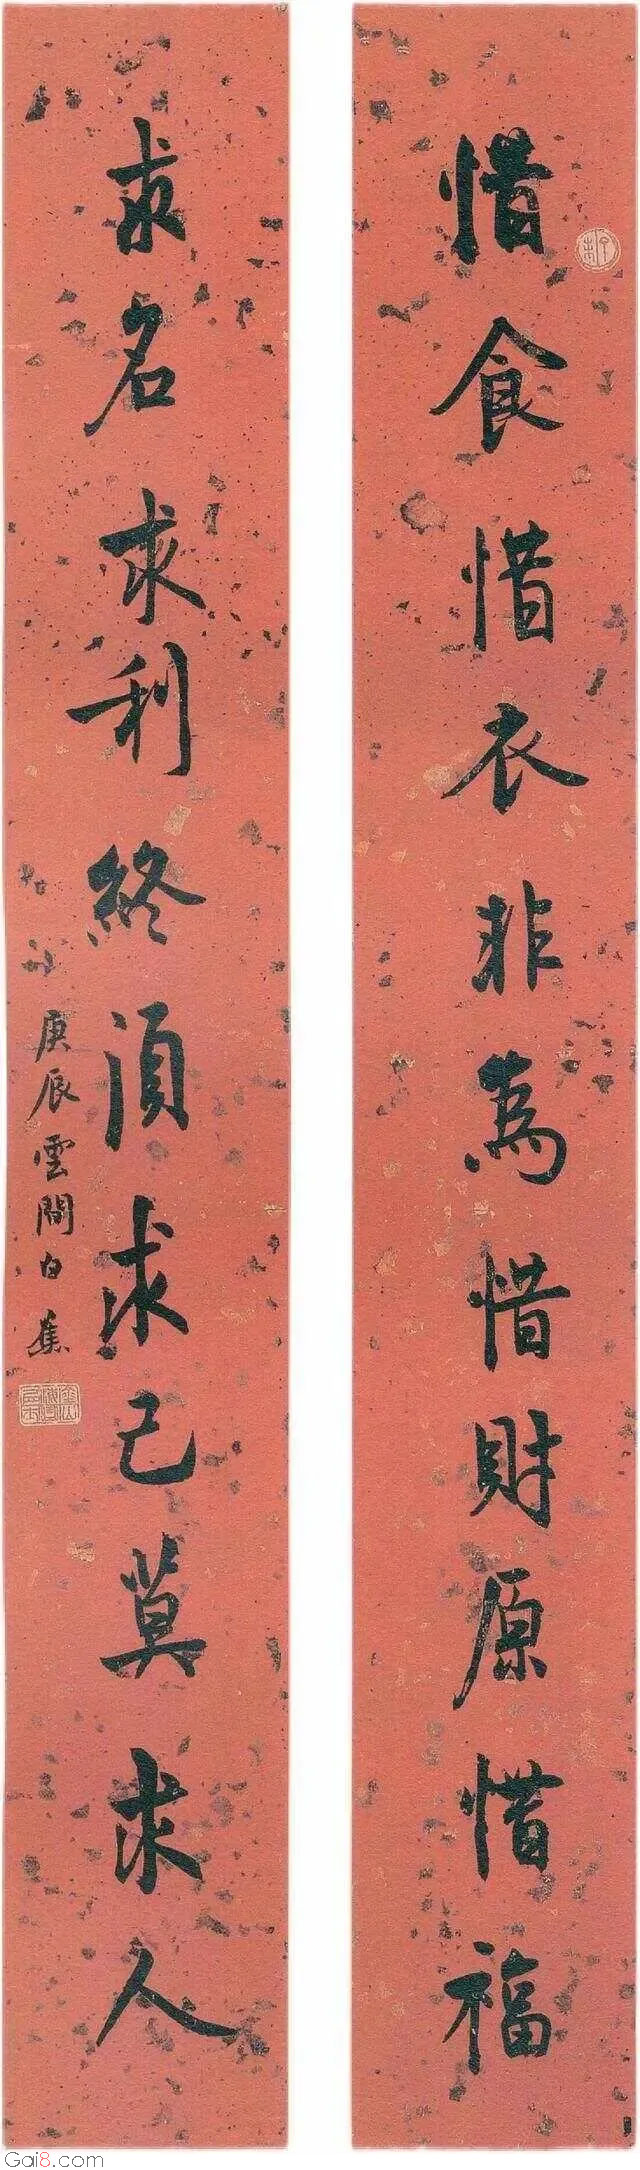 惜食惜衣非為惜財原惜福
求名求利終須求己莫求人
庚辰雲間白蕉
Gai8.com